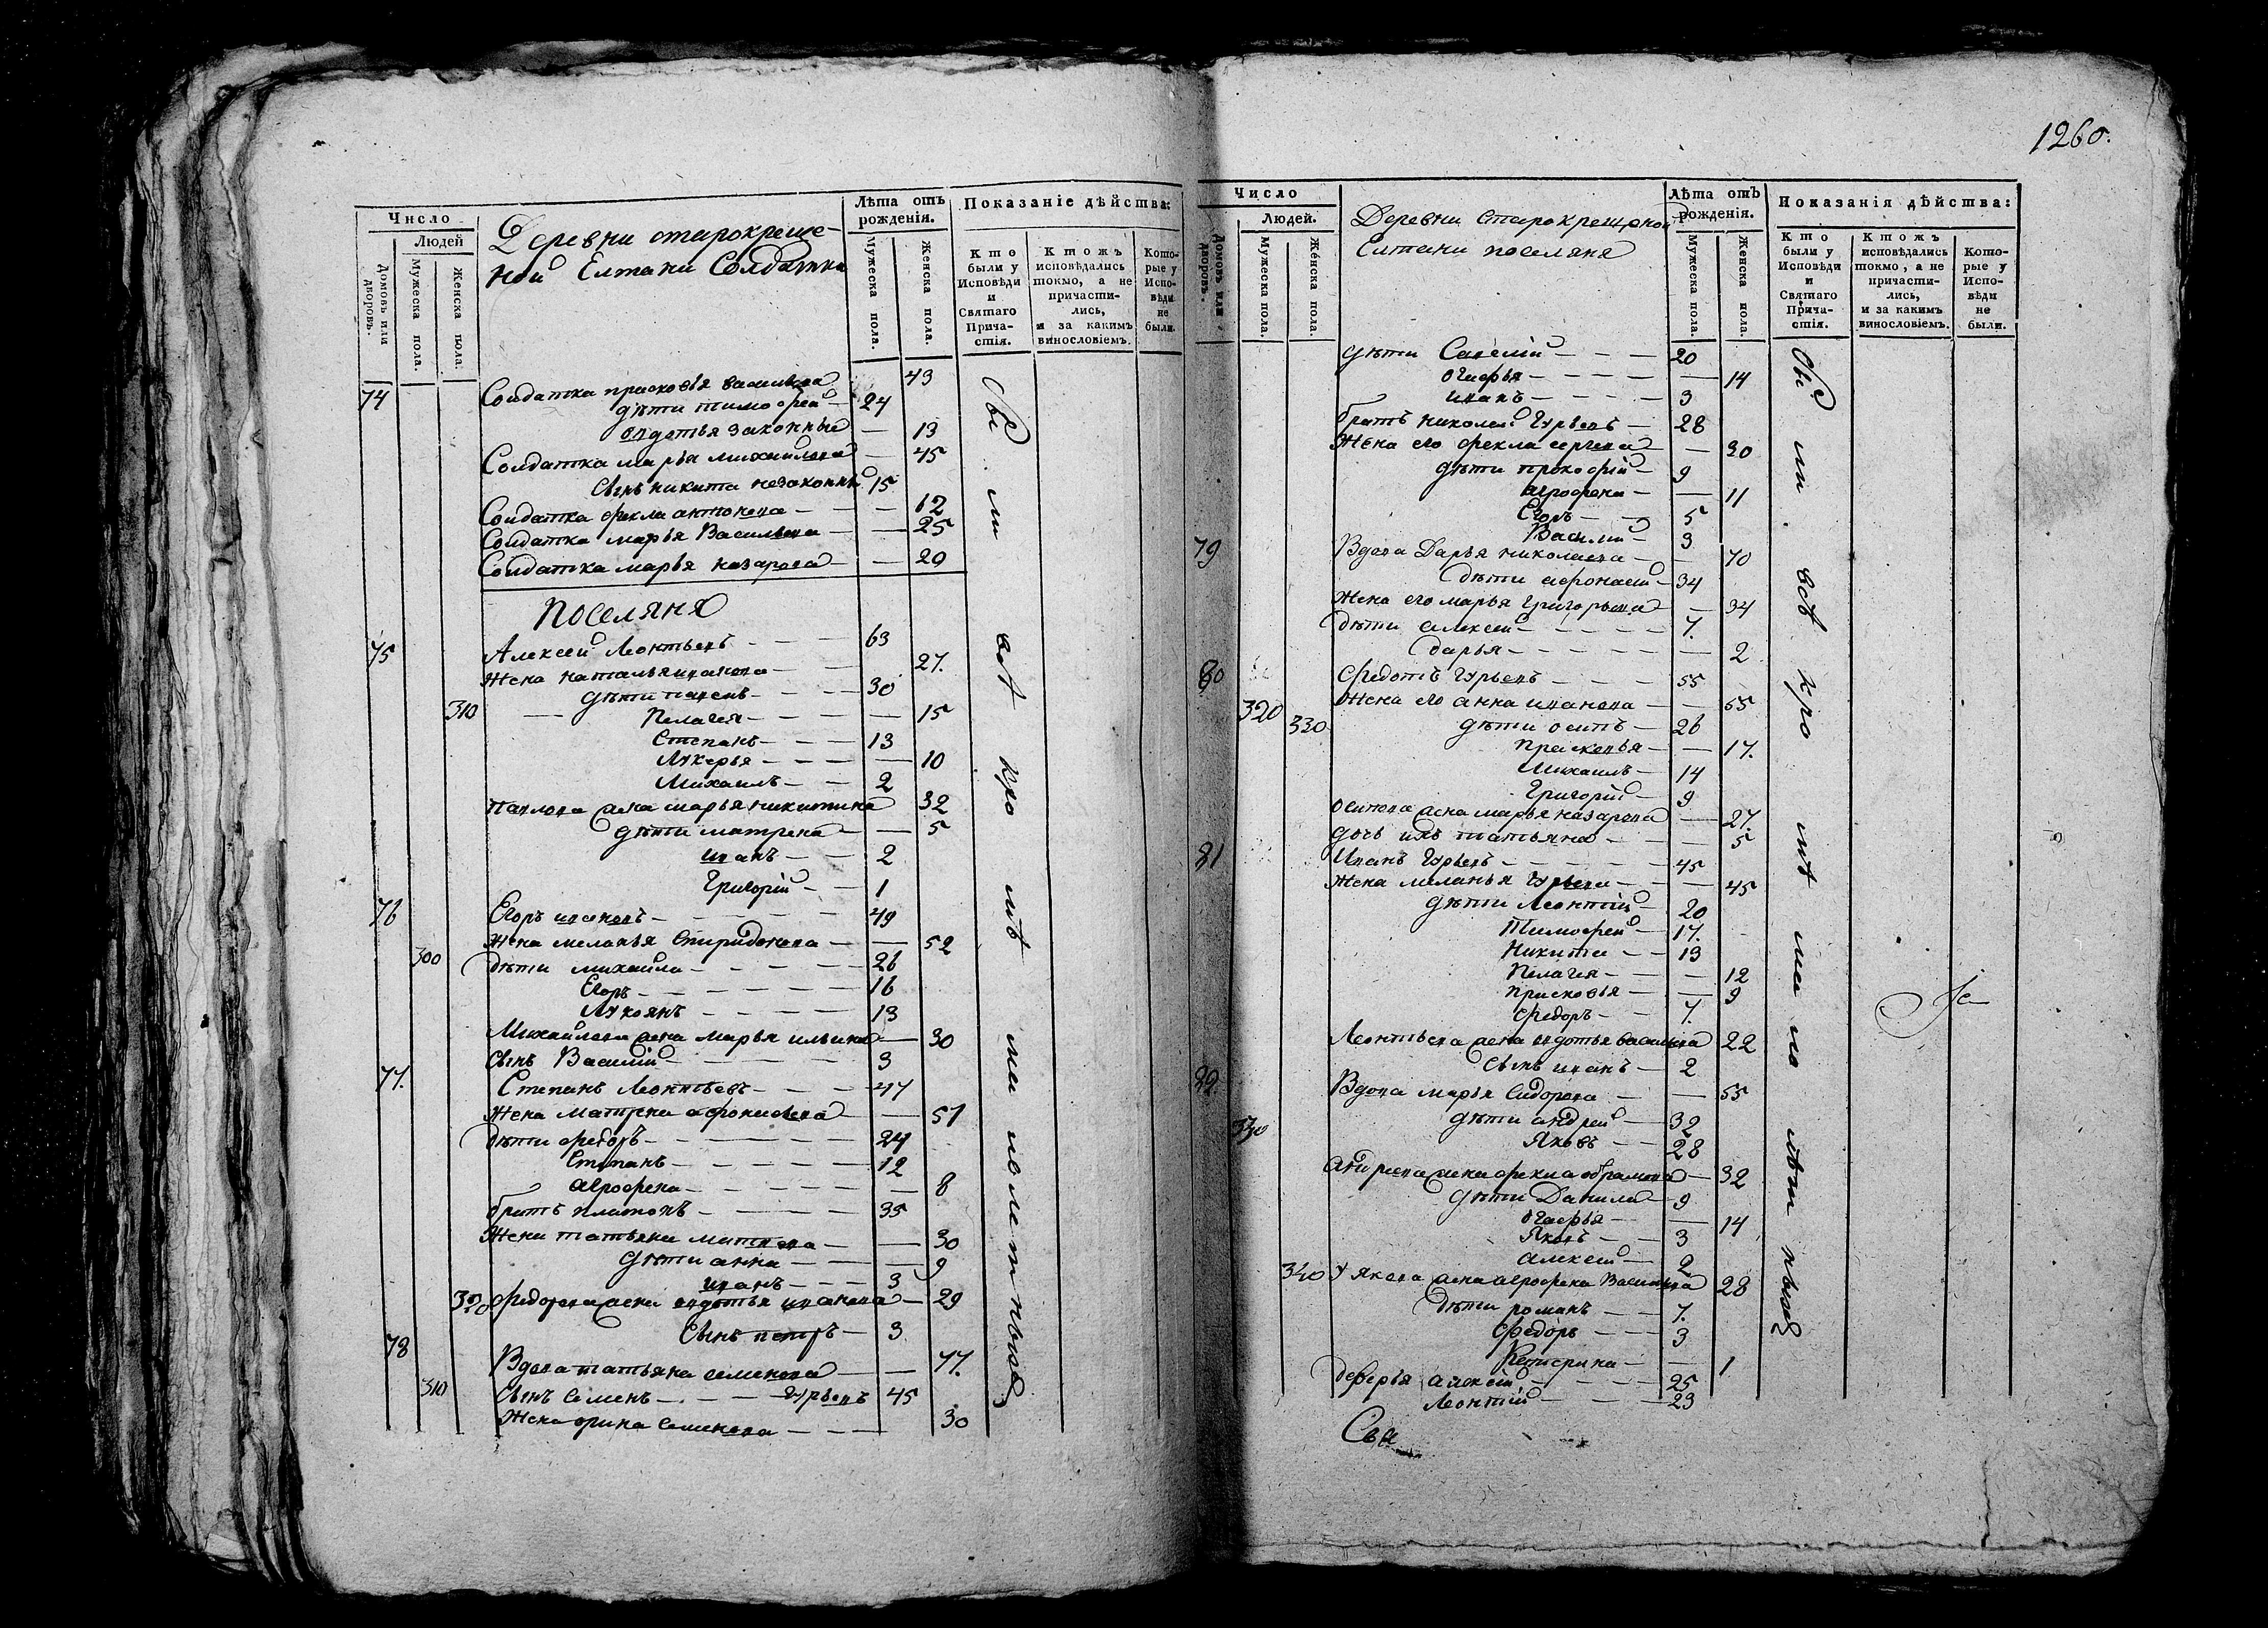 1260.
Число
Людей
Домовъ или дворовъ.
Мужеска пола.
Женска пола.
Деревни старокреще-
ной Елтани Солдатки
Лѣта отъ рожденія.
Мужеска пола.
Женска пола.
Показаніе дѣйства:
Кто были у Исповѣди и Святаго Прича-стія.
Ктожъ исповѣдались токмо, а не причасти-лись, и за какимъ винословіемъ.
Кото-рые у Испо-вѣди не были.
74 Солдатка прасковья васильева 43
дѣти тимофей 24
авдотья законные 13
Солдатка марья михайлова 45
Сынъ никита незаконны 15
Солдатка фекла антонова 62
Солдатка марья Васильева 25
Солдатка марья назарова 20
Поселяня
75 Алексей Леонтьевъ 63
Жена наталья иванова 27.
дѣти павелъ 30
310 Пелагея 15
Степанъ 13
Лукерья 10
Михаилъ 2
Павлова жена марья никитина 32
дѣти матрена 5
иванъ 2
Григорій 1
76 Егоръ ивановъ 49
Жена меланья Спиридонова 52
300 дѣти михайла 26
Егоръ 16
Лукоянъ 13
Михайлова жена марья ильина 30
Сынъ Василій 3
77. Степанъ Леонтьевъ 47
Жена матрена афонасьева 51
дѣти федоръ 24
Степанъ 12
агрофена 8
братъ платонъ 35
Жена татьяна матвеева 30
дѣти анна 9
иванъ 3
320 федорова жена авдотья иванова 29
Сынъ петръ 3
78 Вдова татьяна семенова 77.
310 Сынъ Семенъ гурьевъ 45
Жена орина Семенова 30
Число
Людей.
Домовъ или дворовъ.
Мужеска пола.
Женска пола.
Деревни старокрещоной
Елтани поселяня
Лѣта отъ рожденія.
Мужеска пола.
Женска пола.
Показанія дѣйства:
Кто были у Исповѣди и Святаго Прича-стія.
Ктожъ исповѣдались токмо, а не причасти-лись, и за какимъ винословіемъ.
Кото-рые у Испо-вѣди не были.
дѣти Савелій 20
огафья 14
иванъ 3
братъ николай Гурьевъ 28
Жена его фекла сергеева 30
дѣти прокофій 9
агрофена 11
Егоръ 5
Василій 3
79 Вдова Дарья николаева 70
дѣти афонасей 34
Жена его марья григорьева 34
дѣти алексей 7.
дарья 2
80 федотъ Гурьевъ 55
320 Жена его анна иванова 55
330 дѣти осипъ 26
прасковья 17.
Михаилъ 14
Григорій 9
осипова жена марья назарова 27.
дочь ихъ татьяна 5
81 Иванъ Гурьевъ 45
Жена меланья Гурьева 45
дѣти Леонтій 20
Тимофей 17.
Никита 13
Пелагея 12
прасковья 9
федоръ 7.
Леонтьева жена авдотья васильева 22
Сынъ иванъ 2
82. Вдова марья Сидорова 55
330 дѣти андрей 32
Яковъ 28
андреева жена фекла абрамова 32
дѣти Данила 9
огафья 14
Яковъ 3
алексей 2
340 У якова жена агрофена Васильева 28
дѣти романъ 7.
федоръ 3
Катерина 1
деверья алексей 25
Леонтій 23